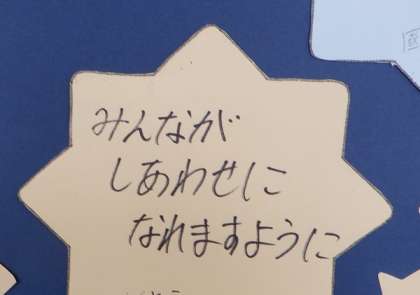 みんなが
しあわせに
なれますように